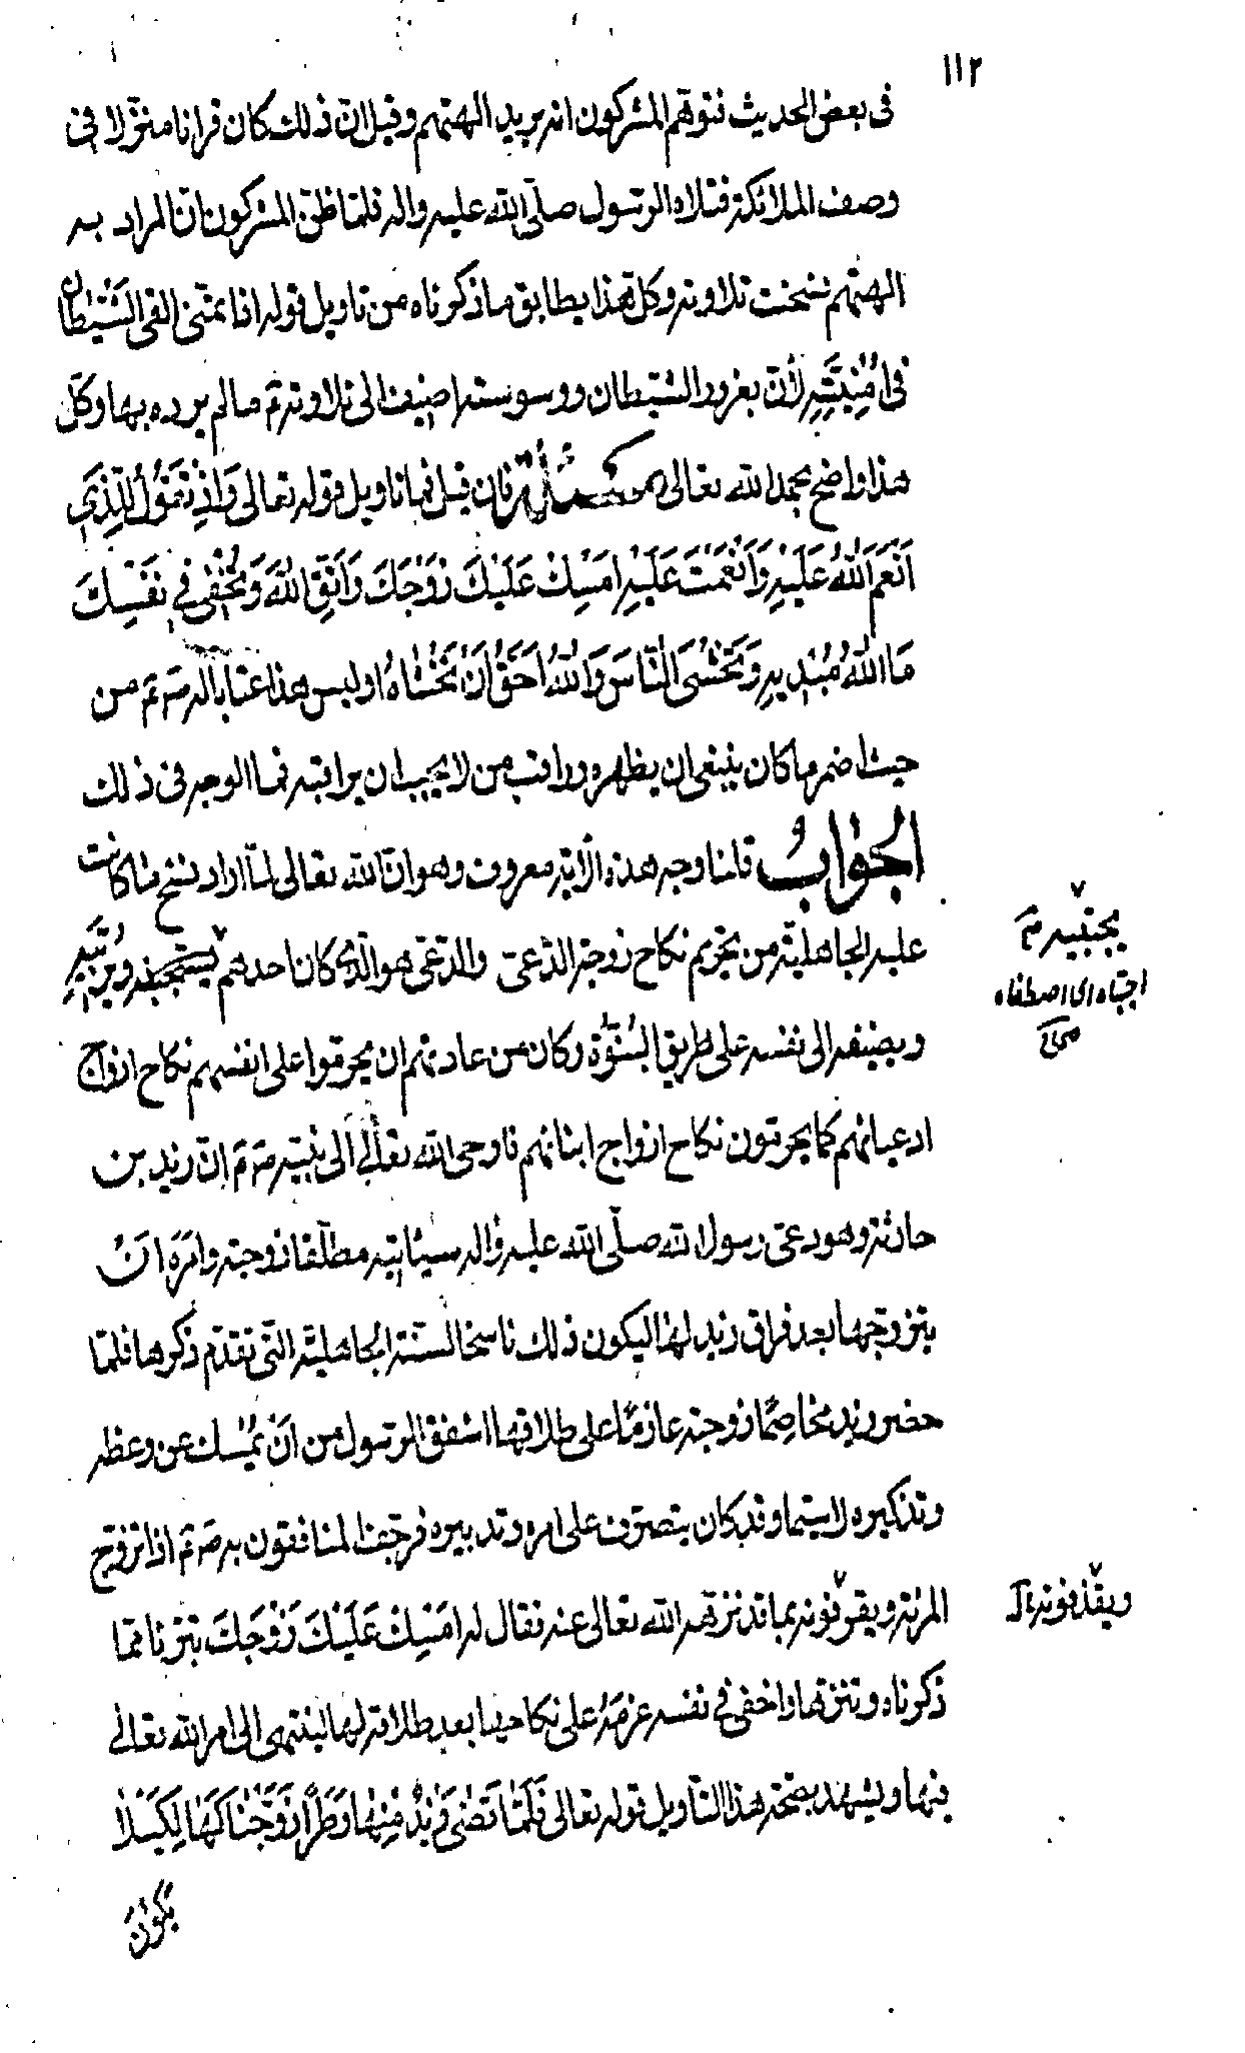 ١١٢
فى بعض الحديث فتوهّم المشركون انه يريد الهتهم وقيل انّ ذلك كان قرانا منزّلا فى
وصف الملائكة فتلاه الرسول صلّى الله عليه واله فلمّا ظنّ المشركون انّ المراد به
الهتهم نسخت تلاوته وكلّ هذا يطابق ما ذكرناه من تاويل قوله اذا تمنّى القى الشَّيْطانُ
فى اُمْنِيَّتِهِ لأنّ بغرور الشيطان ووسوسته اضيف الى تلاوته ؑم ما لم يرده بها وكلّ
هذا واضح بحمد الله تعالى مسئلة فان قيل فما تاويل قوله تعالى وَاِذْ تَقُولُ لِلَّذِي
اَنْعَمَ اللهُ عَلَيْهِ وَاَنْعَمْتَ عَلَيْهِ اَمْسِكْ عَلَيْكَ زَوْجَكَ وَاتَّقِ اللهَ وَتُخْفِى فِي نَفْسِكَ
مَا اللهُ مُبْدِيهِ وَتَخْشَى النَّاسَ وَاللهُ اَحَقُّ اَنْ تَخْشٰاهُ اوليس هذا عتابا له صؑم من
حيث اضمر ما كان ينبغى ان يظهره وراقب من لا يجب ان يراقبه فما الوجه فى ذلك
الجوابُ قلنا وجه هذه الآية معروف وهو انّ الله تعالى لمّا اراد نسخ ما كانت
عليه الجاهليّة من تحريم نكاح زوجة الدّعىّ والدّعىّ هو الّذى كان احدهم يستجيبه ويربّيه
ويضيفه الى نفسه على طريق البُنُوَّة وكان من عادتهم ان يحرّموا على انفسهم نكاح ازواج
ادعيائهم كما يحرّمون نكاح ازواج ابنائهم فاوحى الله تعالى الى نبيّه صؑم انّ زيد بن
حارثة وهو دعىّ رسول الله صلّى الله عليه واله سيأتيه مطلّقا زوجته وامره اَنْ
يتزوّجها بعد فراق زيد لها ليكون ذلك ناسخا لسنّة الجاهليّة التى تقدّم ذكرها فلمّا
حضر زيد مخاصِمًا زوجته عازمًا على طلاقها اشفق الرسول من اَنْ يُمْسِك عن وعظه
وتذكيره لا سيّما وقد كان يتصرّف على امره وتدبيره فرجف المنافقون به صؑم اذا تزوّج
المرئة ويقرفونه بما قد نزّهه الله تعالى عنه فقال له اَمْسِكْ عَلَيْكَ زَوْجَكَ تبرّئا ممّا
ذكرناه وتنزّها واخفى فى نفسه عزمَهُ على نكاحها بعد طلاقه لها لينتهى الى امر الله تعالى
فيها ويشهد بصحّة هذا التأويل قوله تعالى فَلَمّٰا قَضىٰ زَيْدٌ مِنْهٰا وَطَرًا زَوَّجْنٰاكَهٰا لِكَيْلٰا
يَكُونَ
يجتبيه ؑم
اجتباه اى اصطفاه
صحاح
ويقذفونه